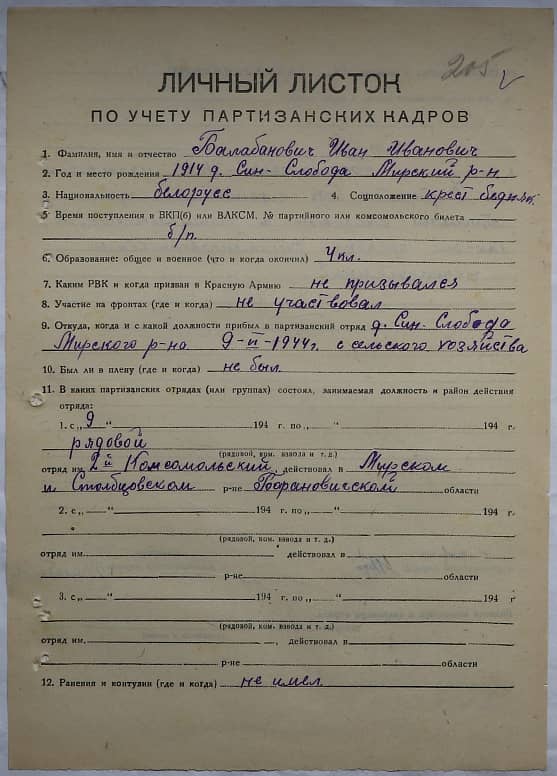 205 v
ЛИЧНЫЙ ЛИСТОК
ПО УЧЕТУ ПАРТИЗАНСКИХ КАДРОВ
1. Фамилия, имя и отчество Балабанович Иван Иванович
2. Год и место рождения 1914 д. Син-Слобода Мирский р-н
3. Национальность белорусс 4. Соцположение крест бедняк
5. Время поступления в ВКП(б) или ВЛКСМ, № партийного или комсомольского билета
б/п.
6. Образование: общее и военное (что и когда окончил) 4 кл.
7. Каким РВК и когда призван в Красную Армию не призывался
8. Участие на фронтах (где и когда) не участвовал
9. Откуда, когда и с какой должности прибыл в партизанский отряд д. Син-Слобода
Мирского р-на 9-II-1944 г. с сельского хозяйства
10. Был ли в плену (где и когда) не был.
11. В каких партизанских отрядах (или группах) состоял, занимаемая должность и район действия
отряда:
1. с „ 9 “ 194 г. по „ “ 194 г.
рядовой
(рядовой, ком. взвода и т. д.)
отряд им. 2й Комсомольский, действовал в Мирском
и Столбцовском р-не Барановисской области
2. с „ “ 194 г. по „ “ 194 г.
(рядовой, ком. взвода и т. д.)
отряд им. действовал в
р-не области
3. с „ “ 194 г. по „ “ 194 г
(рядовой, ком. взвода и т. д.)
отряд им. , действовал в
р-не области
12. Ранения и контузии (где и когда) не имел